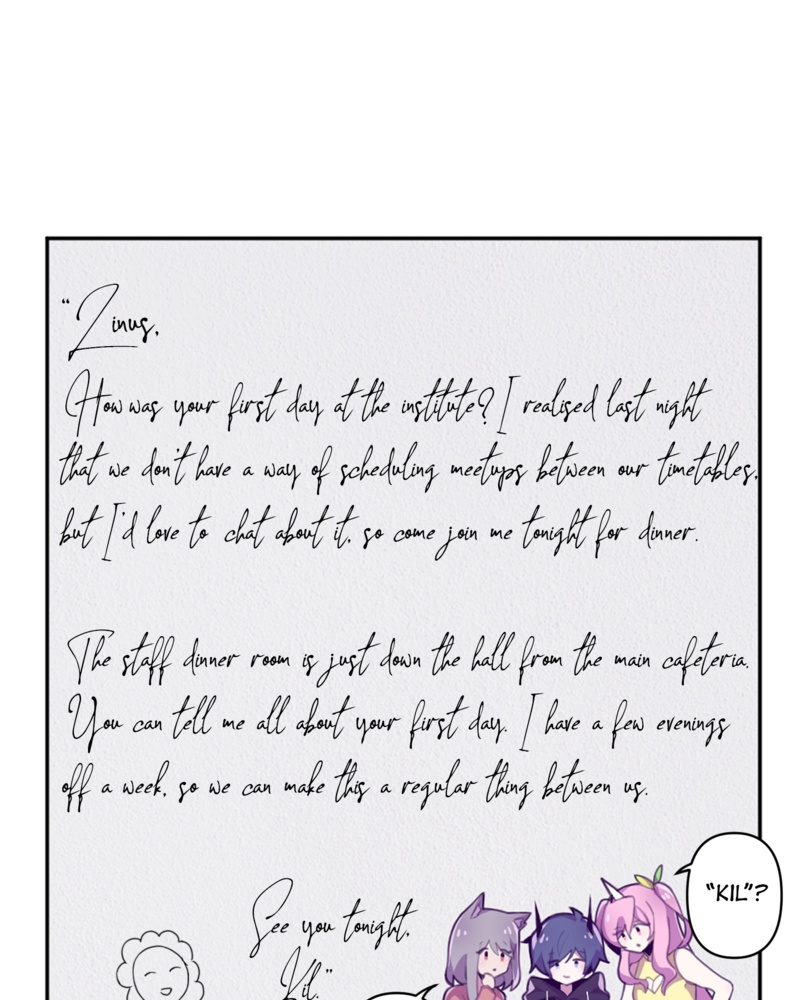 “Linus,
How was your first day at the institute? I realised last night
that we don't have a way of scheduling meetups between our timetables,
but I'd love to chat about it, so come join me tonight for dinner.
The staff dinner room is just down the hall from the main cafeteria.
You can tell me all about your first day. I have a few evenings
off a week, so we can make this a regular thing between us.
See you tonight,
Kil.”
“KIL”?